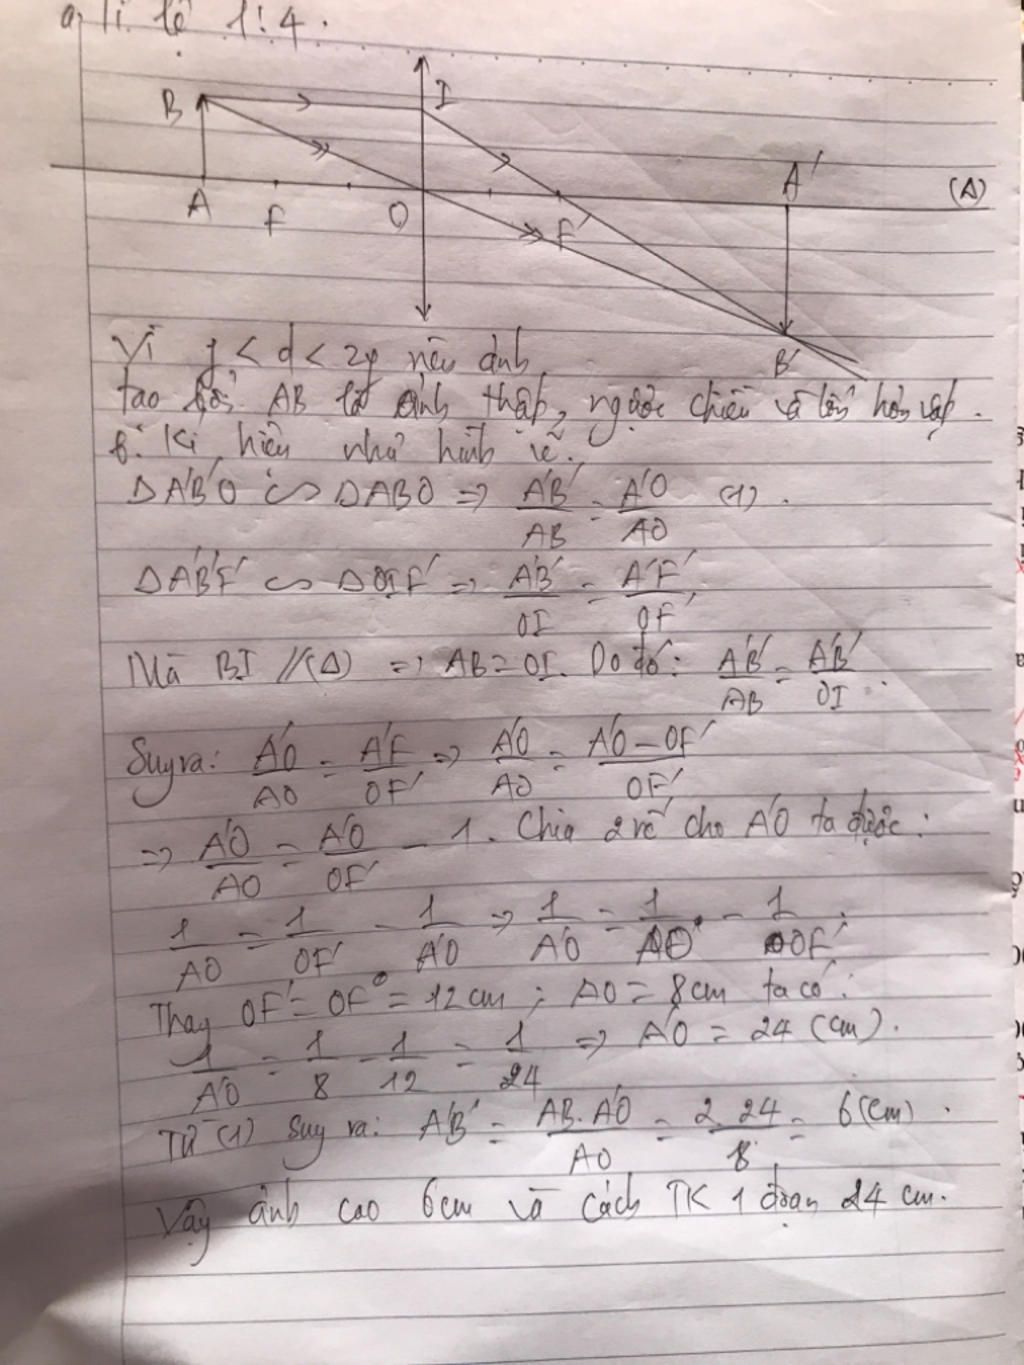 a, Tỉ lệ 1:4.
B I
A F O F' A' (Δ)
B'
Vì f < d < 2f nên ảnh
tạo bởi AB là ảnh thật, ngược chiều và lớn hơn vật.
b. Kí hiệu như hình vẽ.
ΔA'B'O ∽ ΔABO => A'B'/AB = A'O/AO (1).
ΔA'B'F' ∽ ΔOIF' => A'B'/OI = A'F'/OF'
Mà BI //(Δ) => AB = OI. Do đó: A'B'/AB = A'B'/OI.
Suy ra: A'O/AO = A'F/OF' => A'O/AO = A'O - OF'/OF'
=> A'O/AO = A'O/OF' - 1. Chia 2 vế cho A'O ta được:
1/AO = 1/OF' - 1/A'O => 1/A'O = 1/AO - 1/OF';
Thay OF' = OF = 12 cm; AO = 8 cm ta có:
1/A'O = 1/8 - 1/12 = 1/24 => A'O = 24 (cm).
Từ (1) suy ra: A'B' = AB.A'O/AO = 2.24/8 = 6 (cm).
Vậy ảnh cao 6cm và cách TK 1 đoạn 24 cm.